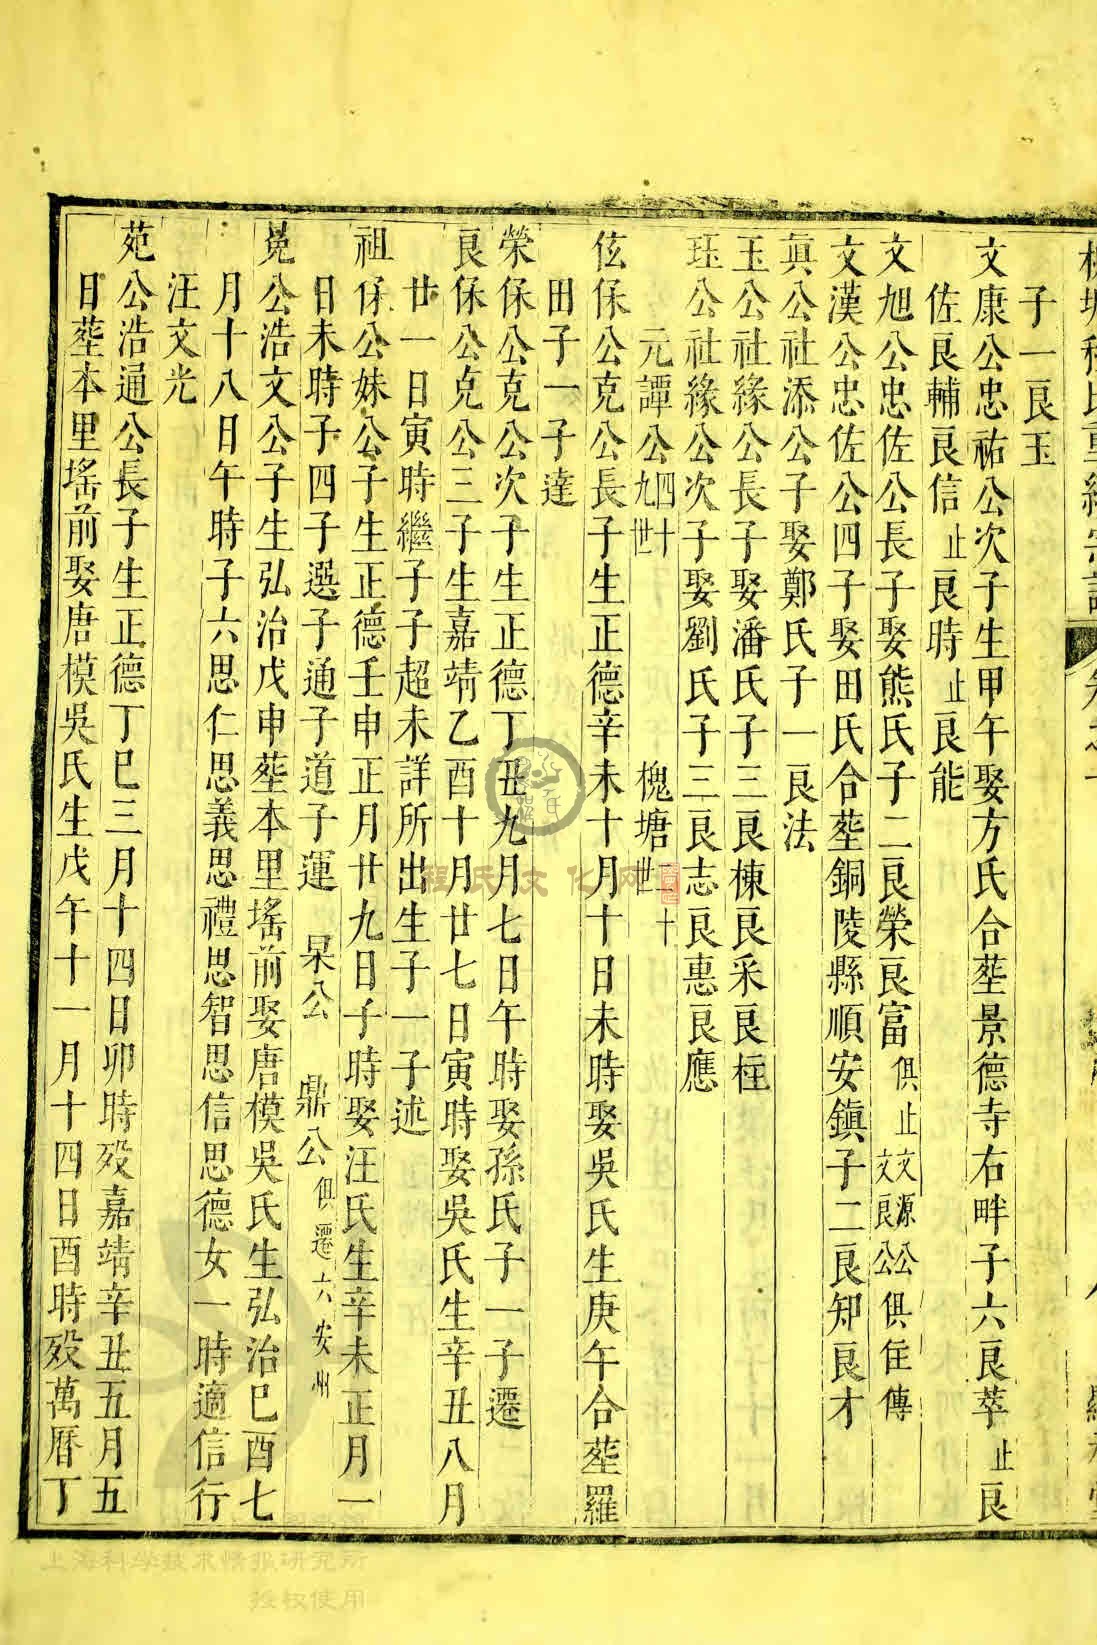 子一良玉
文康公忠祐公次子生甲午娶方氏合塟景德寺右畔子六良萃止良
佐良輔良信止良時止良能
文旭公忠佐公長子娶熊氏子二良榮良富俱止文源公文良公俱住傳
文漢公忠佐公四子娶田氏合塟銅陵縣順安鎮子二良知良才
眞公社添公子娶鄭氏子一良法
玉公社緣公長子娶潘氏子三良棟良采良柱
珏公社緣公次子娶劉氏子三良志良惠良應
元譚公四十九世 槐塘二十世
伭保公克公長子生正德辛未十月十日未時娶吳氏生庚午合塟羅
田子一子達
榮保公克公次子生正德丁丑九月七日午時娶孫氏子一子遷
良保公克公三子生嘉靖乙酉十月廿七日寅時娶吳氏生辛丑八月
廿一日寅時繼子子超未詳所出生子一子述
祖保公妹公子生正德壬申正月廿九日子時娶汪氏生辛未正月一
日未時子四子選子通子道子運 杲公 鼎公俱遷六安州
堯公浩文公子生弘治戊申塟本里瑤前娶唐模吳氏生弘治己酉七
月十八日午時子六思仁思義思禮思智思信思德女一時適信行
汪文光
苑公浩通公長子生正德丁巳三月十四日卯時歿嘉靖辛丑五月五
日塟本里瑤前娶唐模吳氏生戊午十一月十四日酉時歿萬曆丁
程氏文化网
上海科学技术情报研究所
授权使用